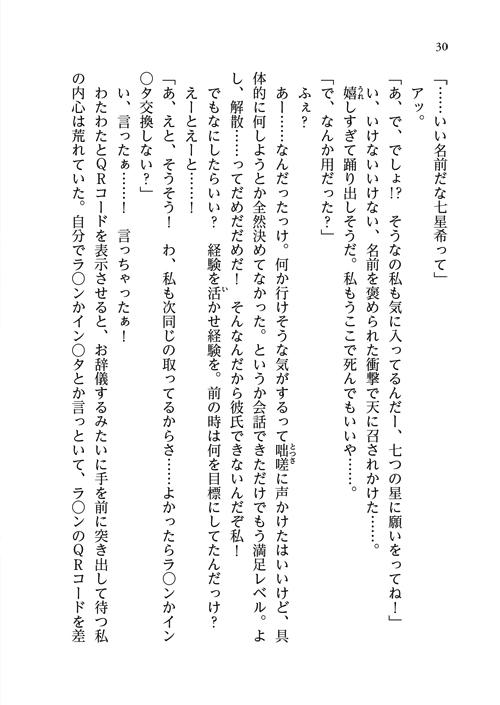 30
「……いい名前だな七星希って」
アッ。
「あ、で、でしょ!?　そうなの私も気に入ってるんだー、七つの星に願いをってね！」
い、いけないいけない、名前を褒められた衝撃で天に召されかけた……。
嬉しすぎて踊り出しそうだ。私もうここで死んでもいいや……。
「で、なんか用だった？」
ふぇ？
あー……なんだったっけ。何か行けそうな気がするって咄嗟に声かけたはいいけど、具
体的に何しようとか全然決めてなかった。というか会話できただけでもう満足レベル。よ
し、解散……ってだめだだめだ！　そんなんだから彼氏できないんだぞ私！
でもなにしたらいい？　経験を活かせ経験を。前の時は何を目標にしてたんだっけ？
えーとえーと……！
「あ、えと、そうそう！　わ、私も次同じの取ってるからさ……よかったらラ〇ンかイン
〇タ交換しない？」
い、言ったぁ……！　言っちゃったぁ！
わたわたとＱＲコードを表示させると、お辞儀するみたいに手を前に突き出して待つ私
の内心は荒れていた。自分でラ〇ンかイン〇タとか言っといて、ラ〇ンのＱＲコードを差